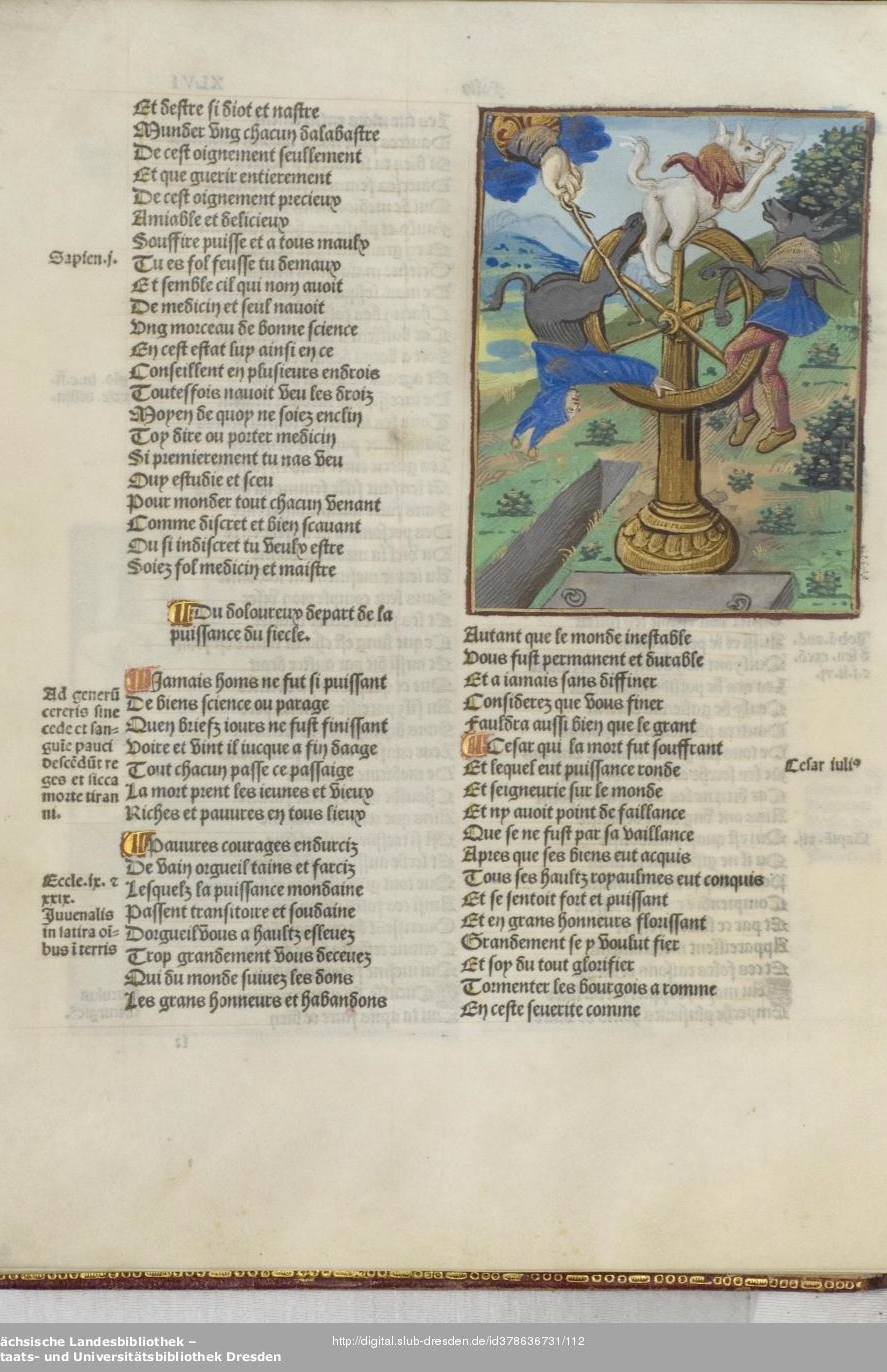 Et destre si diot et nastre
Munder vng chacun dalabastre
De cest oignement seullement
Et que guerir entierement
De cest oignement precieux
Amiable et delicieux
Souffire puisse et a tous maulx
Sapien.j.
Tu es fol feusse tu demaux
Et semble cil qui nom auoit
De medicin et seul nauoit
Vng morceau de bonne science
En cest estat luy ainsi en ce
Conseillent en plusieurs endrois
Toutesfois nauoit veu les droiz
Moyen de quoy ne soiez enclin
Toy dire ou porter medicin
Si premierement tu nas veu
Ouy estudie et sceu
Pour monder tout chacun venant
Comme discret et bien scauant
Ou si indiscret tu veulx estre
Soiez fol medicin et maistre
Du doloureux depart de la
puissance du siecle.
Jamais homs ne fut si puissant
De biens science ou parage
Quen briefz iours ne fust finissant
Voire et vint il iucque a fin daage
Tout chacun passe ce passaige
La mort prent les ieunes et vieux
Riches et pauures en tous lieux
Ad generū
cereris sine
cede et san-
guīe pauci
descēdūt re
ges et sicca
morte tiran
ni.
Pauures courages endurciz
De vain orgueil tains et farciz
Lesquelz la puissance mondaine
Passent transitoire et soudaine
Dorgueil vous a haultz esleuez
Trop grandement vous deceuez
Qui du monde suiuez les dons
Les grans honneurs et habandons
Eccle.ix. ⁊
xxix.
Juuenalis
in satira oī-
bus ī terris
Autant que le monde inestable
Vous fust permanent et durable
Et a iamais sans diffiner
Considerez que vous finer
Fauldra aussi bien que le grant
Cesar qui la mort fut souffrant
Et lequel eut puissance ronde
Et seigneurie sur le monde
Et ny auoit point de faillance
Que se ne fust par sa vaillance
Apres que ses biens eut acquis
Tous ses haultz royaulmes eut conquis
Et se sentoit fort et puissant
Et en grans honneurs florissant
Grandement se y voulut fier
Et soy du tout glorifier
Tormenter les bourgois a romme
En ceste seuerite comme
Cesar iuliꝰ
ächsische Landesbibliothek –
taats- und Universitätsbibliothek Dresden
http://digital.slub-dresden.de/id378636731/112